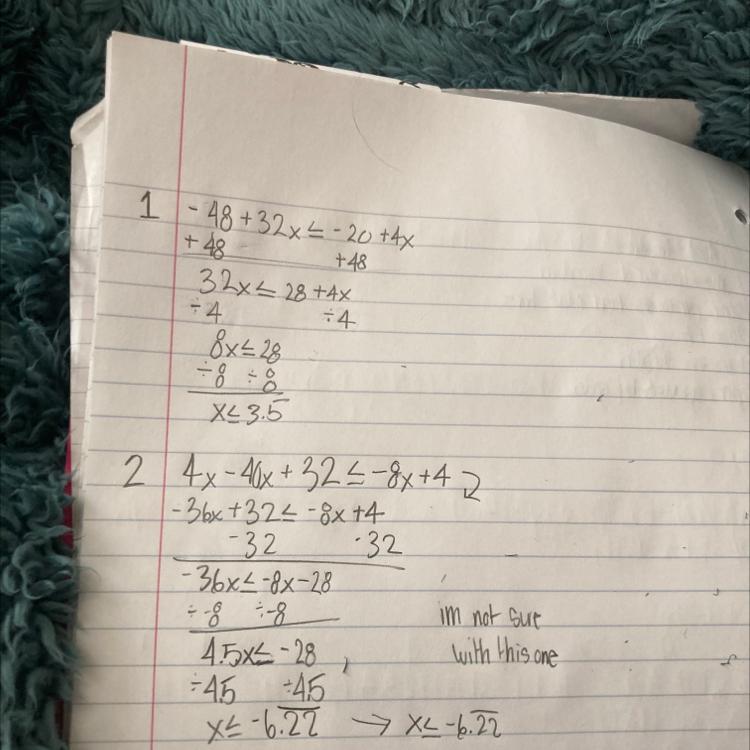 1 -48+32x≤-20+4x
+48 +48
32x≤28+4x
÷4 ÷4
8x≤28
÷8 ÷8
x≤3.5
2 4x-40x+32≤-8x+4
-36x+32≤-8x+4
-32 -32
-36x≤-8x-28
÷-8 ÷-8
4.5x≤-28
÷4.5 ÷4.5
x≤-6.2̅2̅ → x≤-6.2̅2̅
im not sure
with this one